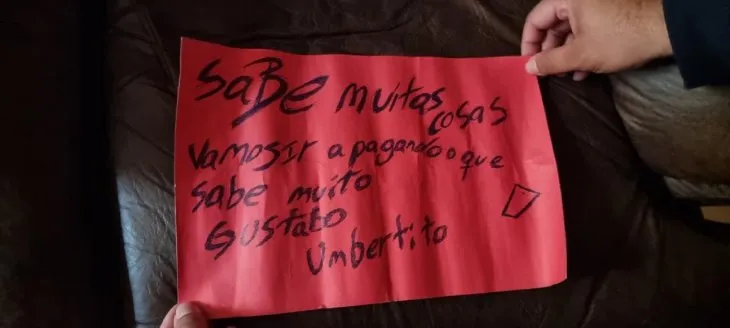 SaBe muitas cosas
Vamosir apagando o que
sabe muito
Gustabo
Umbertito